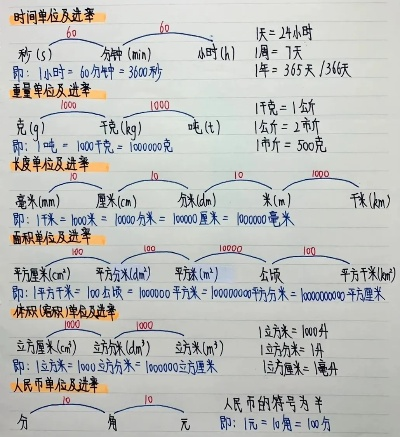 时间单位及进率
60 60
秒(s) 分钟(min) 小时(h)
即: 1小时=60分钟=3600秒
1天=24小时
1周=7天
1年=365天/366天
重量单位及进率
1000 1000
克(g) 千克(kg) 吨(t)
即: 1吨=1000千克=1000000克
1千克=1公斤
1公斤=2市斤
1市斤=500克
长度单位及进率
10 10 10 1000
毫米(mm) 厘米(cm) 分米(dm) 米(m) 千米(km)
即: 1千米=1000米=10000分米=100000厘米=1000000毫米
面积单位及进率
100 100 10000 100
平方厘米(cm²) 平方分米(dm²) 平方米(m²) 公顷 平方千米(km²)
即: 1平方千米=100公顷=1000000平方米=100000000平方分米=10000000000平方厘米
体积(容积)单位及进率
1000 1000
立方厘米(cm³) 立方分米(dm³) 立方米(m³)
即: 1立方米=1000立方分米=1000000立方厘米
1立方米=1000升
1立方分米=1升
1立方厘米=1毫升
人民币单位及进率
10 10
分 角 元
人民币的符号为¥
即: 1元=10角=100分